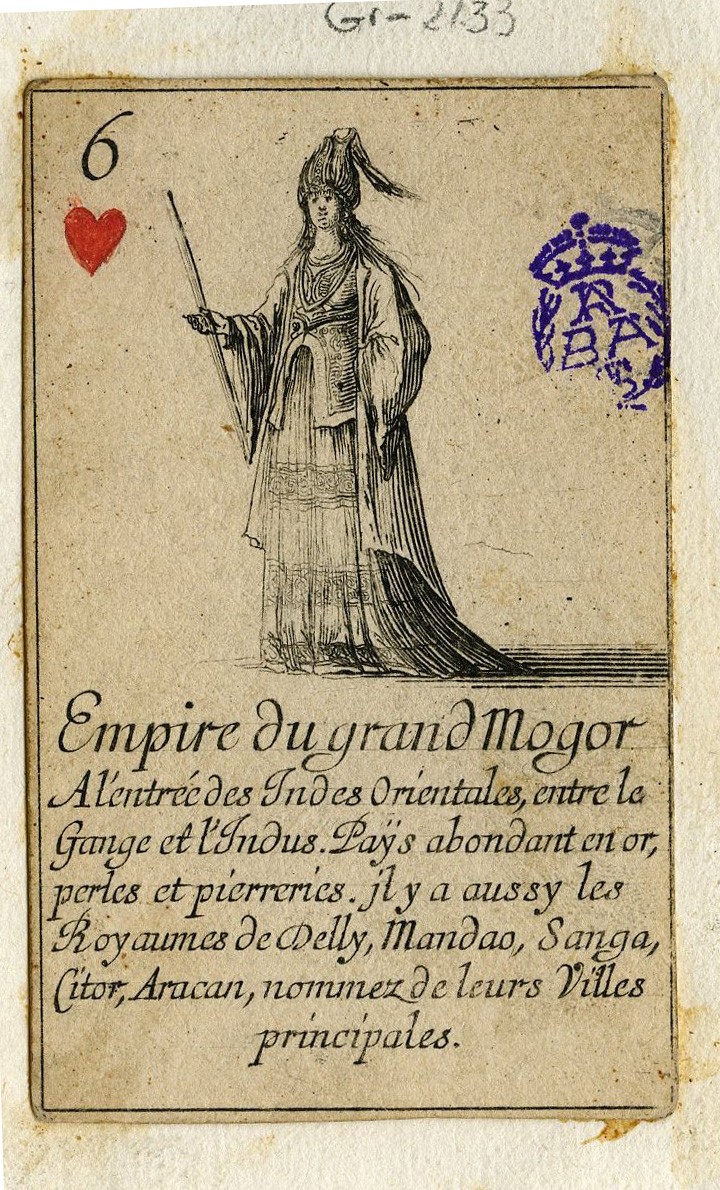 Gr-2133
6
RABA
Empire du grand Mogor
A l'entrée des Indes Orientales, entre le
Gange et l'Indus. Païs abondant en or,
perles et pierreries. jl y a aussy les
Royaumes de Delly, Mandao, Sanga,
Citor, Aracan, nommez de leurs Villes
principales.